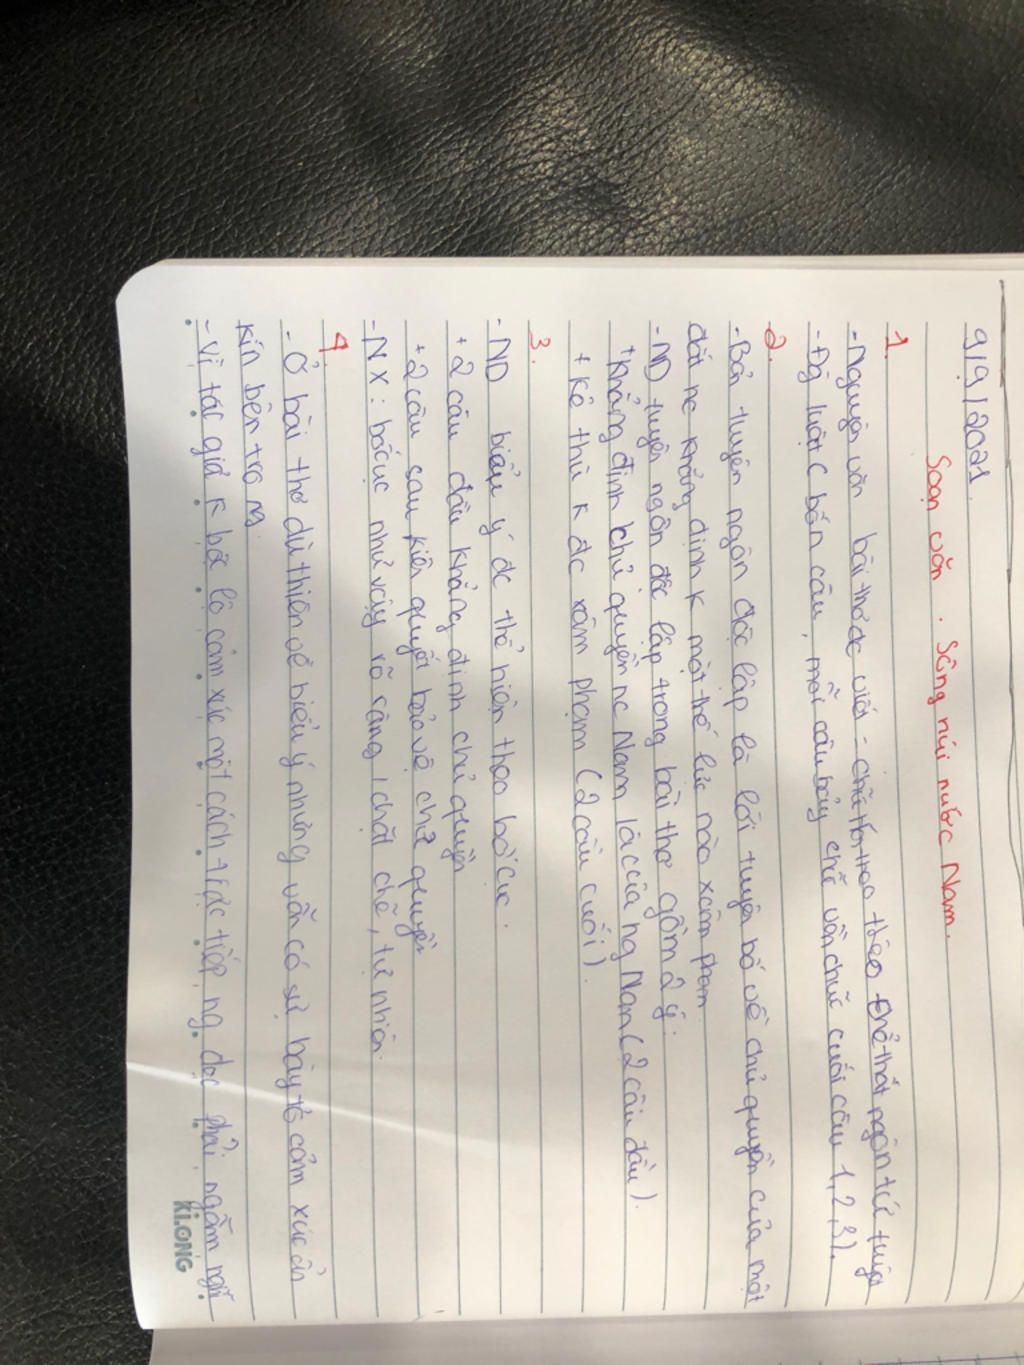 9/9/2021
Soạn văn. Sông núi nước Nam.
1.
- Nguyên văn bài thơ đc viết = chữ Hán theo thể thất ngôn tứ tuyệt
- Đg luật (bốn câu, mỗi câu bảy chữ vần chữ cuối câu 1, 2, 3).
2.
- Bản tuyên ngôn độc lập là lời tuyên bố về chủ quyền của một
đất nc khẳng định k một thế lực nào xâm phạm
- ND tuyên ngôn độc lập trong bài thơ gồm 2 ý:
+ Khẳng định chủ quyền nc Nam là của ng Nam (2 câu đầu).
+ Kẻ thù k đc xâm phạm (2 câu cuối).
3.
- ND biểu ý đc thể hiện theo bố cục.
+ 2 câu đầu khẳng định chủ quyền
+ 2 câu sau kiên quyết bảo vệ chủ quyền
- NX: bố cục như vậy rõ ràng, chặt chẽ, tự nhiên.
4.
- Ở bài thơ dù thiên về biểu ý nhưng vẫn có sự bày tỏ cảm xúc ẩn
kín bên trong
- Vì tác giả k bộc lộ cảm xúc một cách trực tiếp ng đọc phải ngẫm nghĩ
KLONG